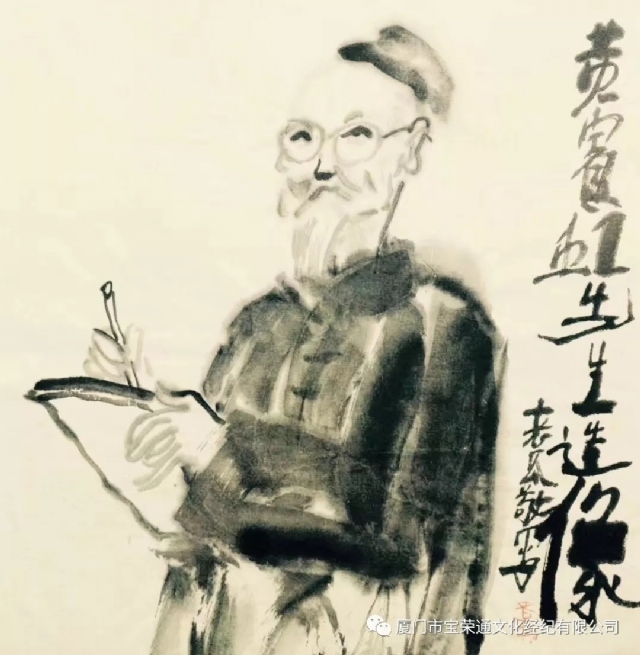 黄賓虹先生造像
老敬寫
厦门市宝荣通文化经纪有限公司